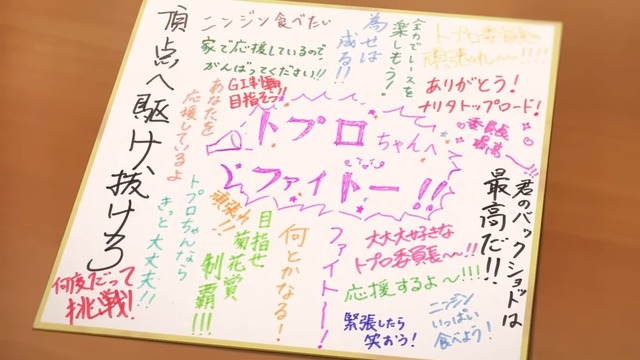 頂点へ駆け抜けろ
ニンジン食べたい
家で応援しているので、
がんばってください!!
為せば
成る!!
全力でレースを
楽しもう!
トプロ委員長
頑張れ〜!!!!
ありがとう!
ナリタトップロード!
GI制覇
目指そっ!!
あなたを
応援しているよ
トプロちゃんへ
ファイトー!!
委員長
最高〜!!!
君のバックショットは
最高だ!!
トプロちゃんなら
きっと大丈夫!!
頑張れ!!
目指せ
菊花賞
制覇!!!
何とかなる!
ファイトー!
大大大好きな
トプロ委員長〜!!
応援するよ〜!!!
緊張したら
笑おう!
ニンジン
いっぱい
食べよう!
何度だって
挑戦!